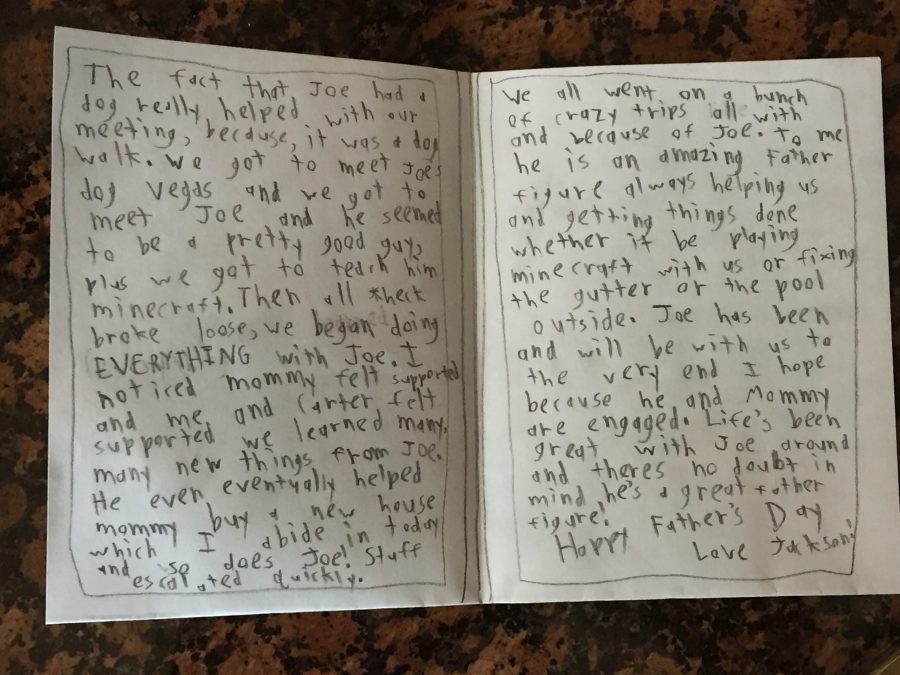 The fact that Joe had a
dog really helped with our
meeting, because, it was a dog
walk. We got to meet Joe's
dog Vegas and we got to
meet Joe and he seemed
to be a pretty good guy,
plus we got to teach him
minecraft. Then all *heck
broke loose, we began doing
EVERYTHING with Joe. I
noticed mommy felt supported
and me and Carter felt
supported we learned many,
many new things from Joe.
He even eventually helped
mommy buy a new house
which I abide in today
and so does Joe! Stuff
escalated quickly.
We all went on a bunch
of crazy trips all with
and because of Joe. To me
he is an amazing Father
figure always helping us
and getting things done
whether it be playing
minecraft with us or fixing
the gutter or the pool
outside. Joe has been
and will be with us to
the very end I hope
because he and Mommy
are engaged. Life's been
great with Joe around
and theres no doubt in
mind he's a great father
figure! 
Happy Father's Day
Love Jackson!